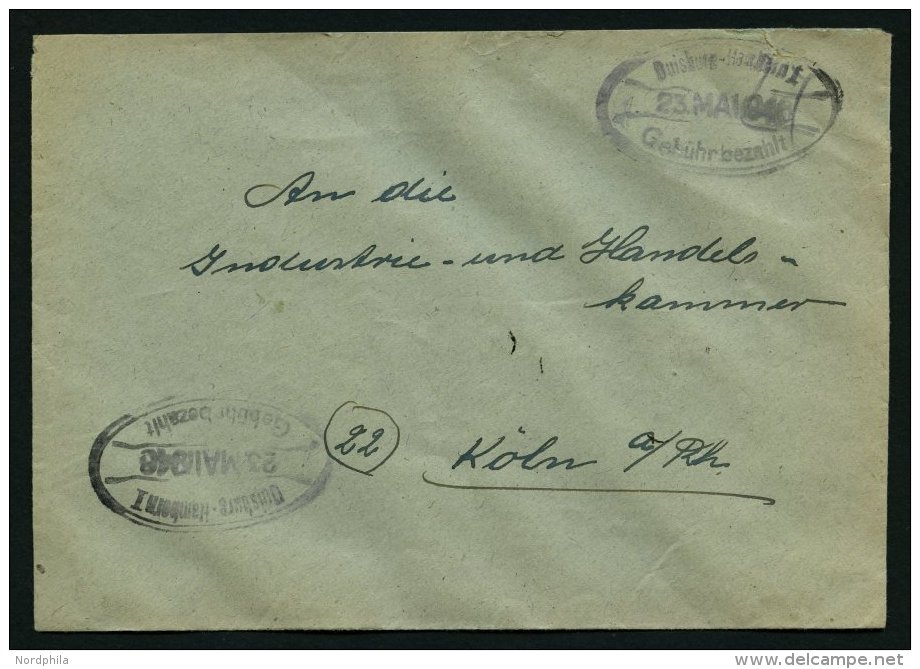 Duisburg-Hamborn 1
23. MAI 1946
Gebühr bezahlt
An die
Industrie- und Handels-
kammer
22
Köln a/Rh.
Gebühr bezahlt
23. MAI 1946
Duisburg-Hamborn 1
Nordphila
delcampe.net